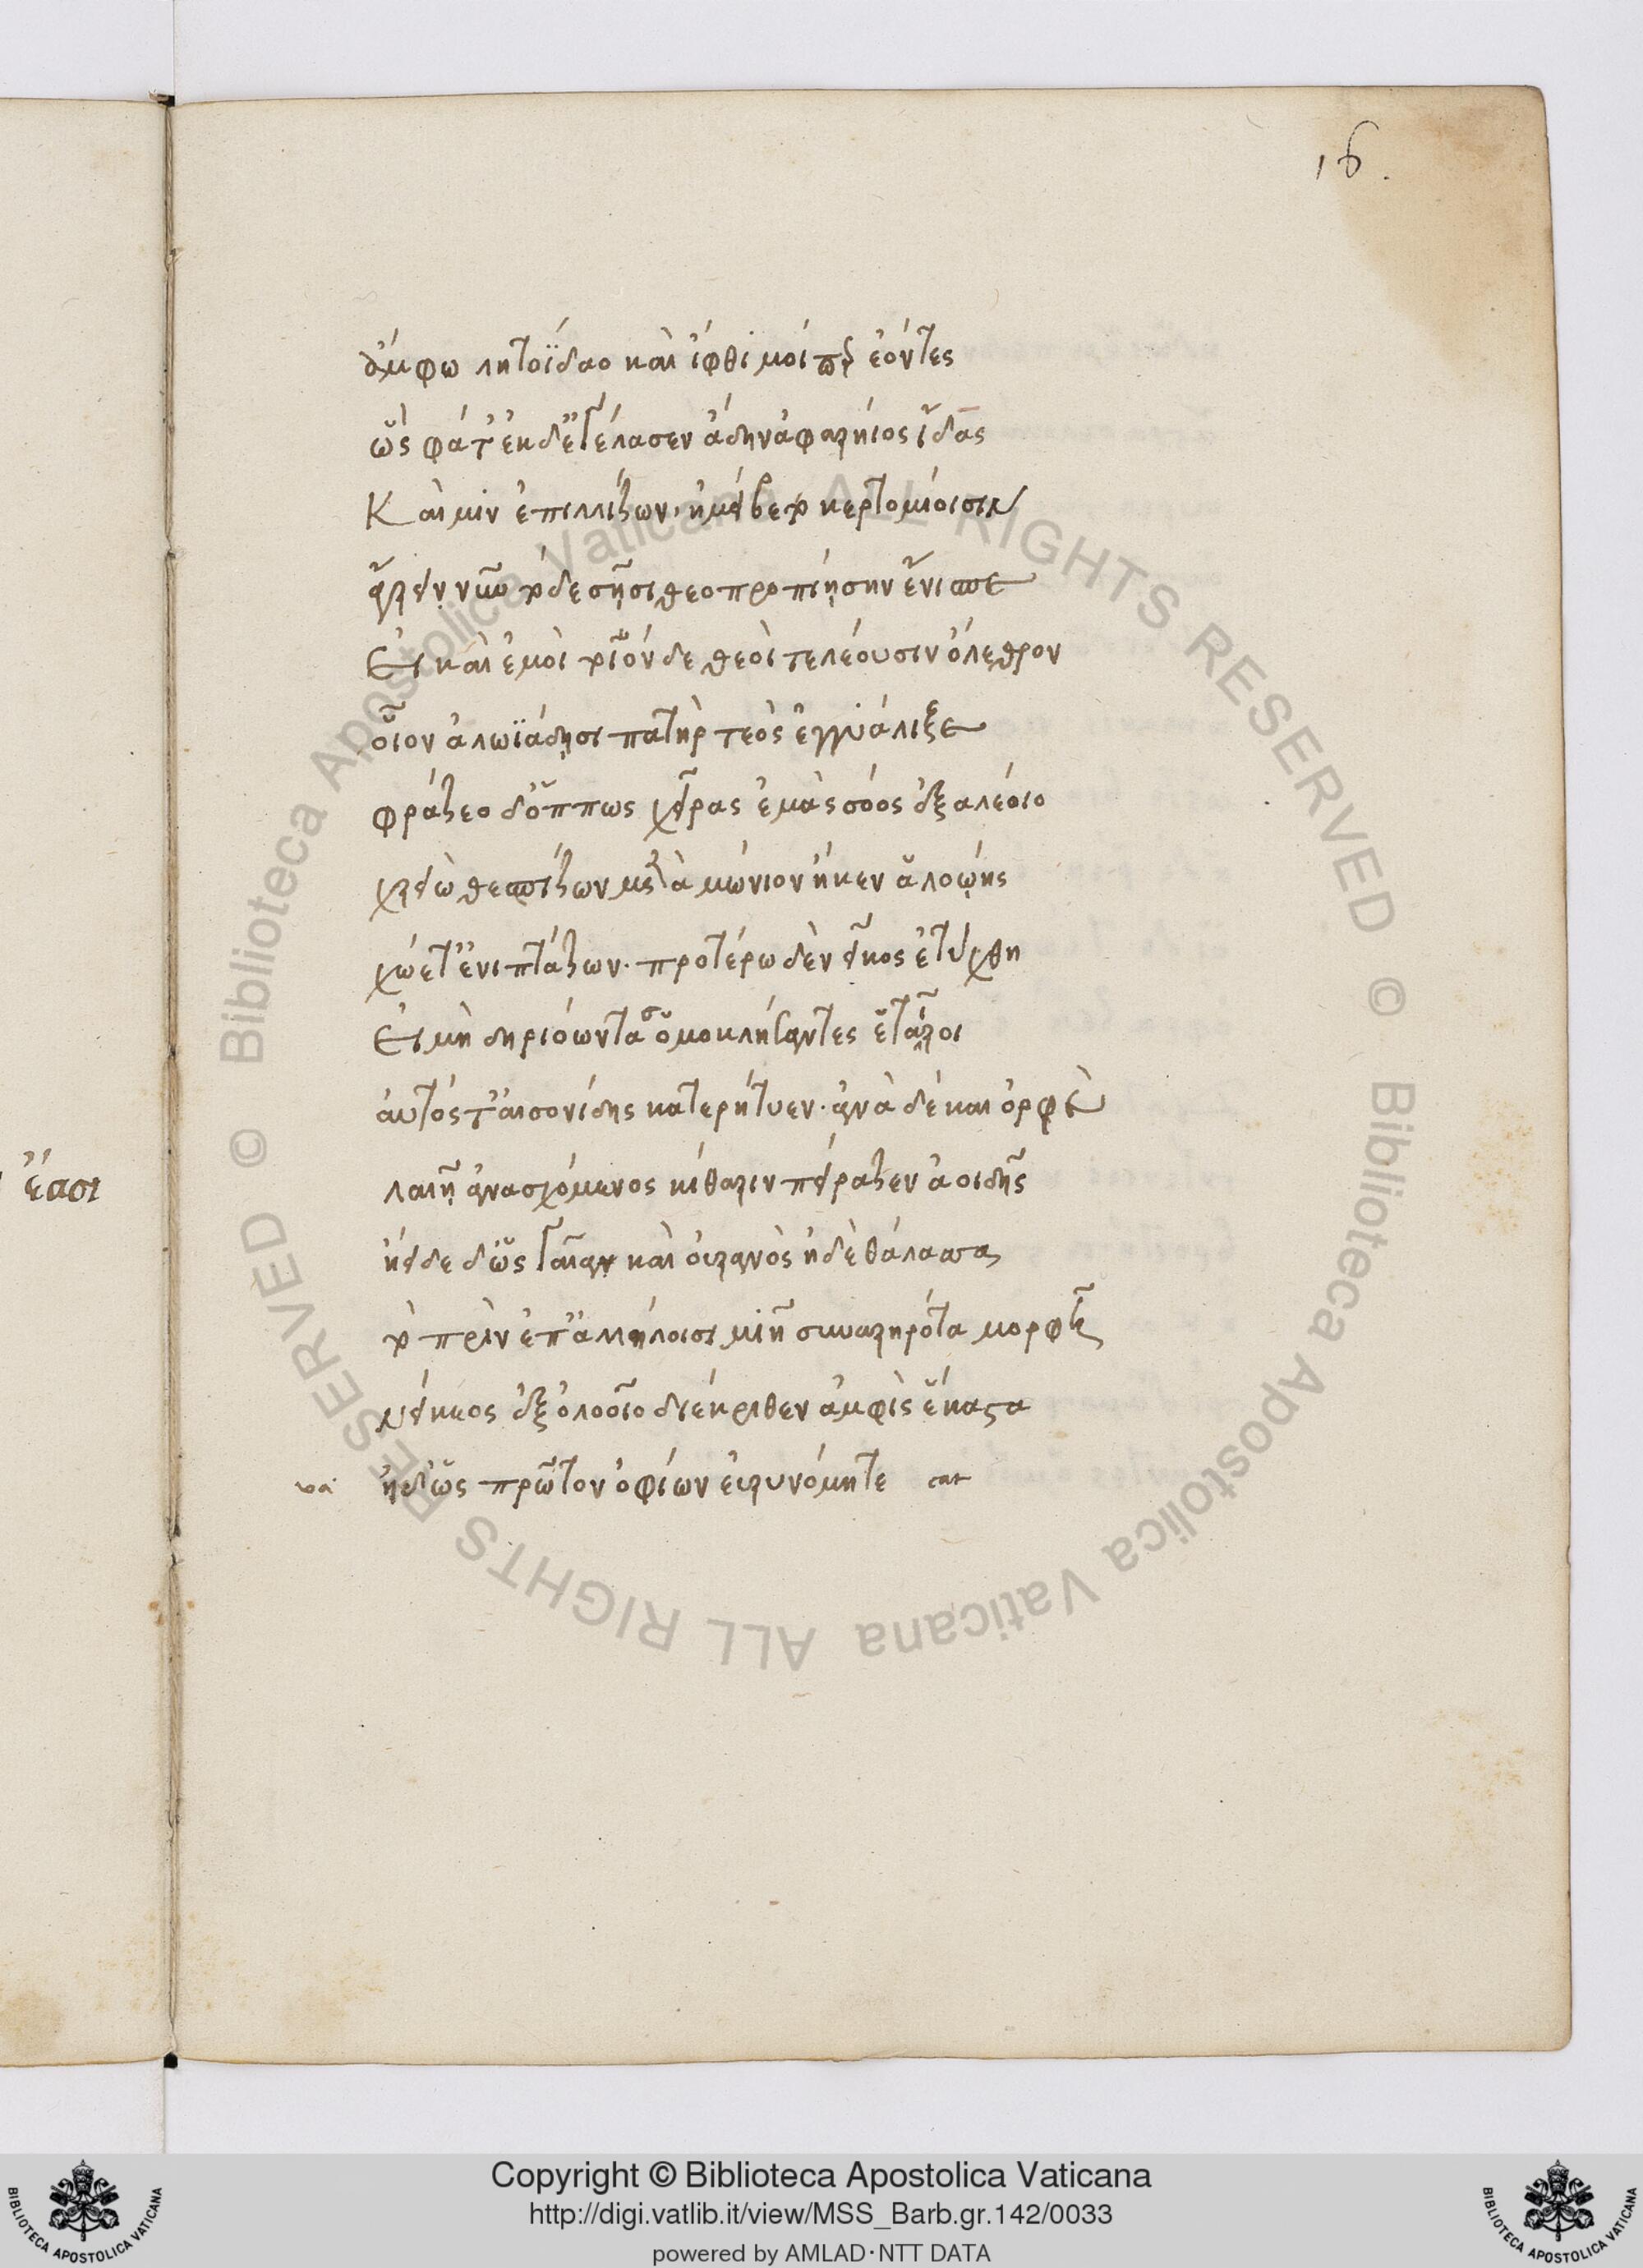 16.
ἄμφω λητοΐδαο καὶ ἴφθιμοί περ ἐόντες
ὣς φάτ' ἐκ δ' ἐγέλασεν ἄδην ἀφαρήιος ἴδας
Καί μιν ἐπιλλίζων· ἠμείβετο κερτομίοισιν
ἄγρει νῦν τόδε σῇσι θεοπροπίῃσιν ἔνισπε
Εἰ καὶ ἐμοὶ τοιόνδε θεοὶ τελέουσιν ὄλεθρον
οἷον ἀλωϊάδῃσι πατὴρ τεὸς ἐγγυάλιξε
φράζεο δ' ὅππως χεῖρας ἐμὰς σόος ἐξαλέοιο
χρειὼ θεσπίζων μεταμώνιον ἤκεν ἁλοίης
χώετ' ἐνιπτάζων· προτέρω δὲ νεῖκος ἐτύχθη
Εἰ μὴ δηριόωντας ὁμοκλήσαντες ἑταῖροι
αὐτός τ' αἰσονίδης κατερήτυεν· ἀνὰ δὲ καὶ ὀρφεὺ
λαιῇ ἀνασχόμενος κίθαριν πείραζεν ἀοιδῆς
ἤειδε δ' ὡς γαῖαν καὶ οὐρανὸς ἠδὲ θάλασσα
τὸ πρὶν ἐπ' ἀλλήλοισι μιῇ συναρηρότα μορφῇ
νείκεος ἐξ ὀλοοῖο διέκριθεν ἀμφὶς ἕκαστα
ἠδ' ὡς πρῶτον ὀφίων εὐρυνόμητε
ἔασι
Copyright © Biblioteca Apostolica Vaticana
http://digi.vatlib.it/view/MSS_Barb.gr.142/0033
powered by AMLAD·NTT DATA
BIBLIOTECA APOSTOLICA VATICANA
BIBLIOTECA APOSTOLICA VATICANA
© Biblioteca Apostolica Vaticana ALL RIGHTS RESERVED © Biblioteca Apostolica Vaticana ALL RIGHTS RESERVED